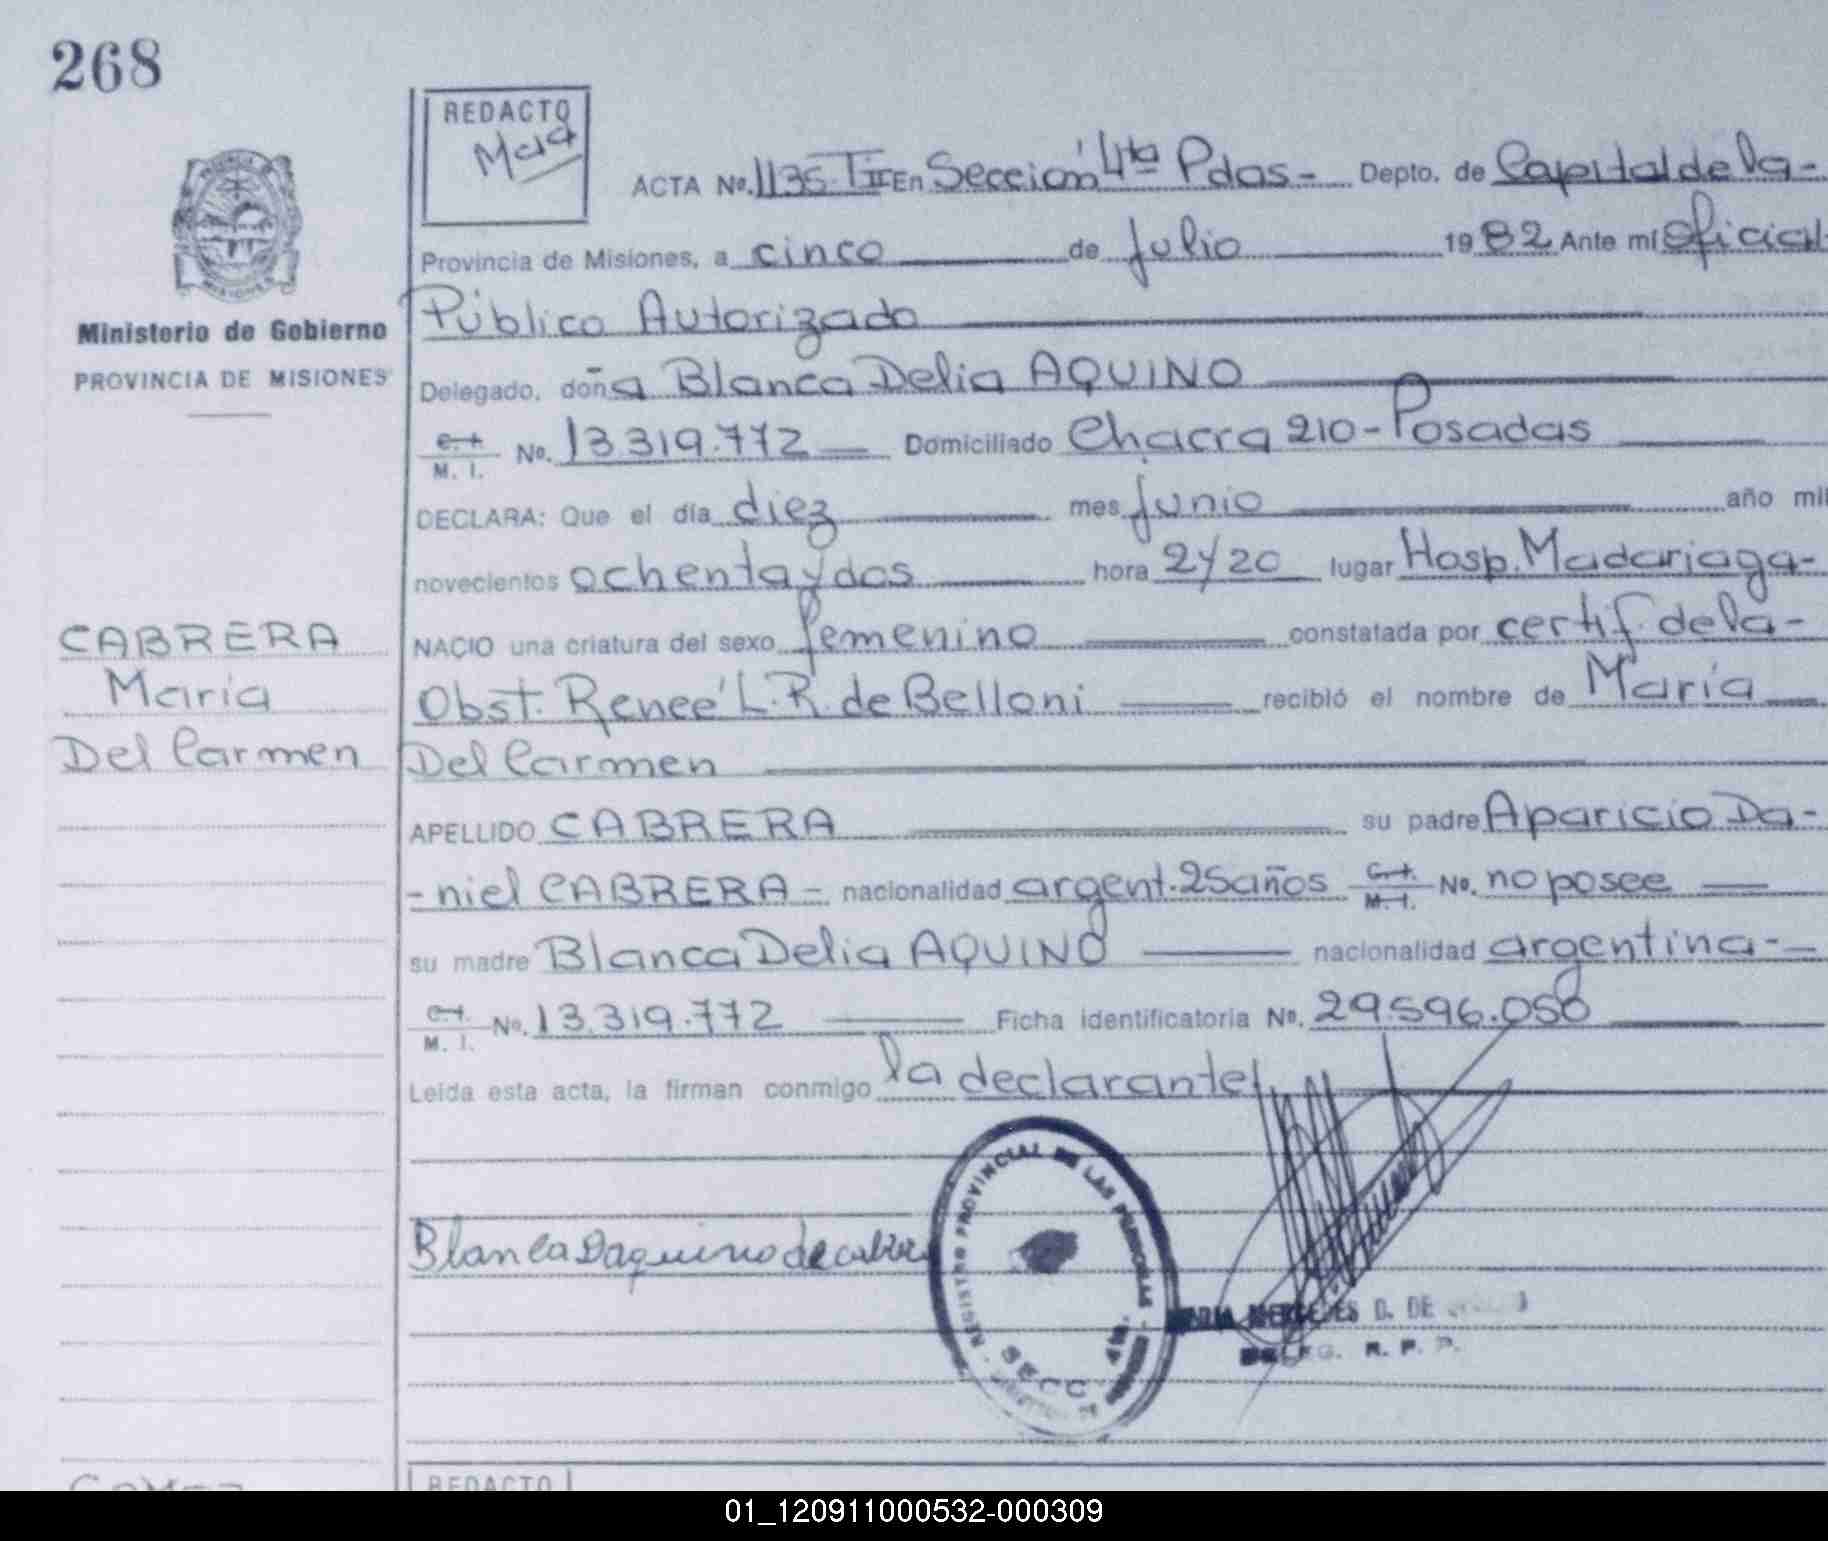 268
REDACTO
Mara
ACTA No. 1135-TII En Sección 4ta Pdas- Depto. de Capital de la-
Provincia de Misiones, a cinco de julio 1982 Ante mí Oficial
Público Autorizado
Ministerio de Gobierno
PROVINCIA DE MISIONES
Delegado, doña Blanca Delia AQUINO
M. I. No. 13.319.772 Domiciliado Chacra 210-Posadas
DECLARA: Que el día diez mes junio año mil
novecientos ochenta y dos hora 2y20 lugar Hosp. Madariaga-
NACIO una criatura del sexo femenino constatada por certif. de la-
Obst. Reneé L.R. de Belloni recibió el nombre de María
Del Carmen
CABRERA
María
Del Carmen
APELLIDO CABRERA su padre Aparicio Da-
-niel CABRERA- nacionalidad argent. 25 años No. no posee
su madre Blanca Delia AQUINO nacionalidad argentina-
M. I. No. 13.319.772 Ficha identificatoria No. 29.596.050
Leída esta acta, la firman conmigo la declarante
Blanca D aquino de cabrera
REGISTRO PROVINCIAL DE LAS PERSONAS
SECC. 4ta.
MARIA MERCEDES D. DE
DELEG. R. P. P.
REDACTO
01_120911000532-000309